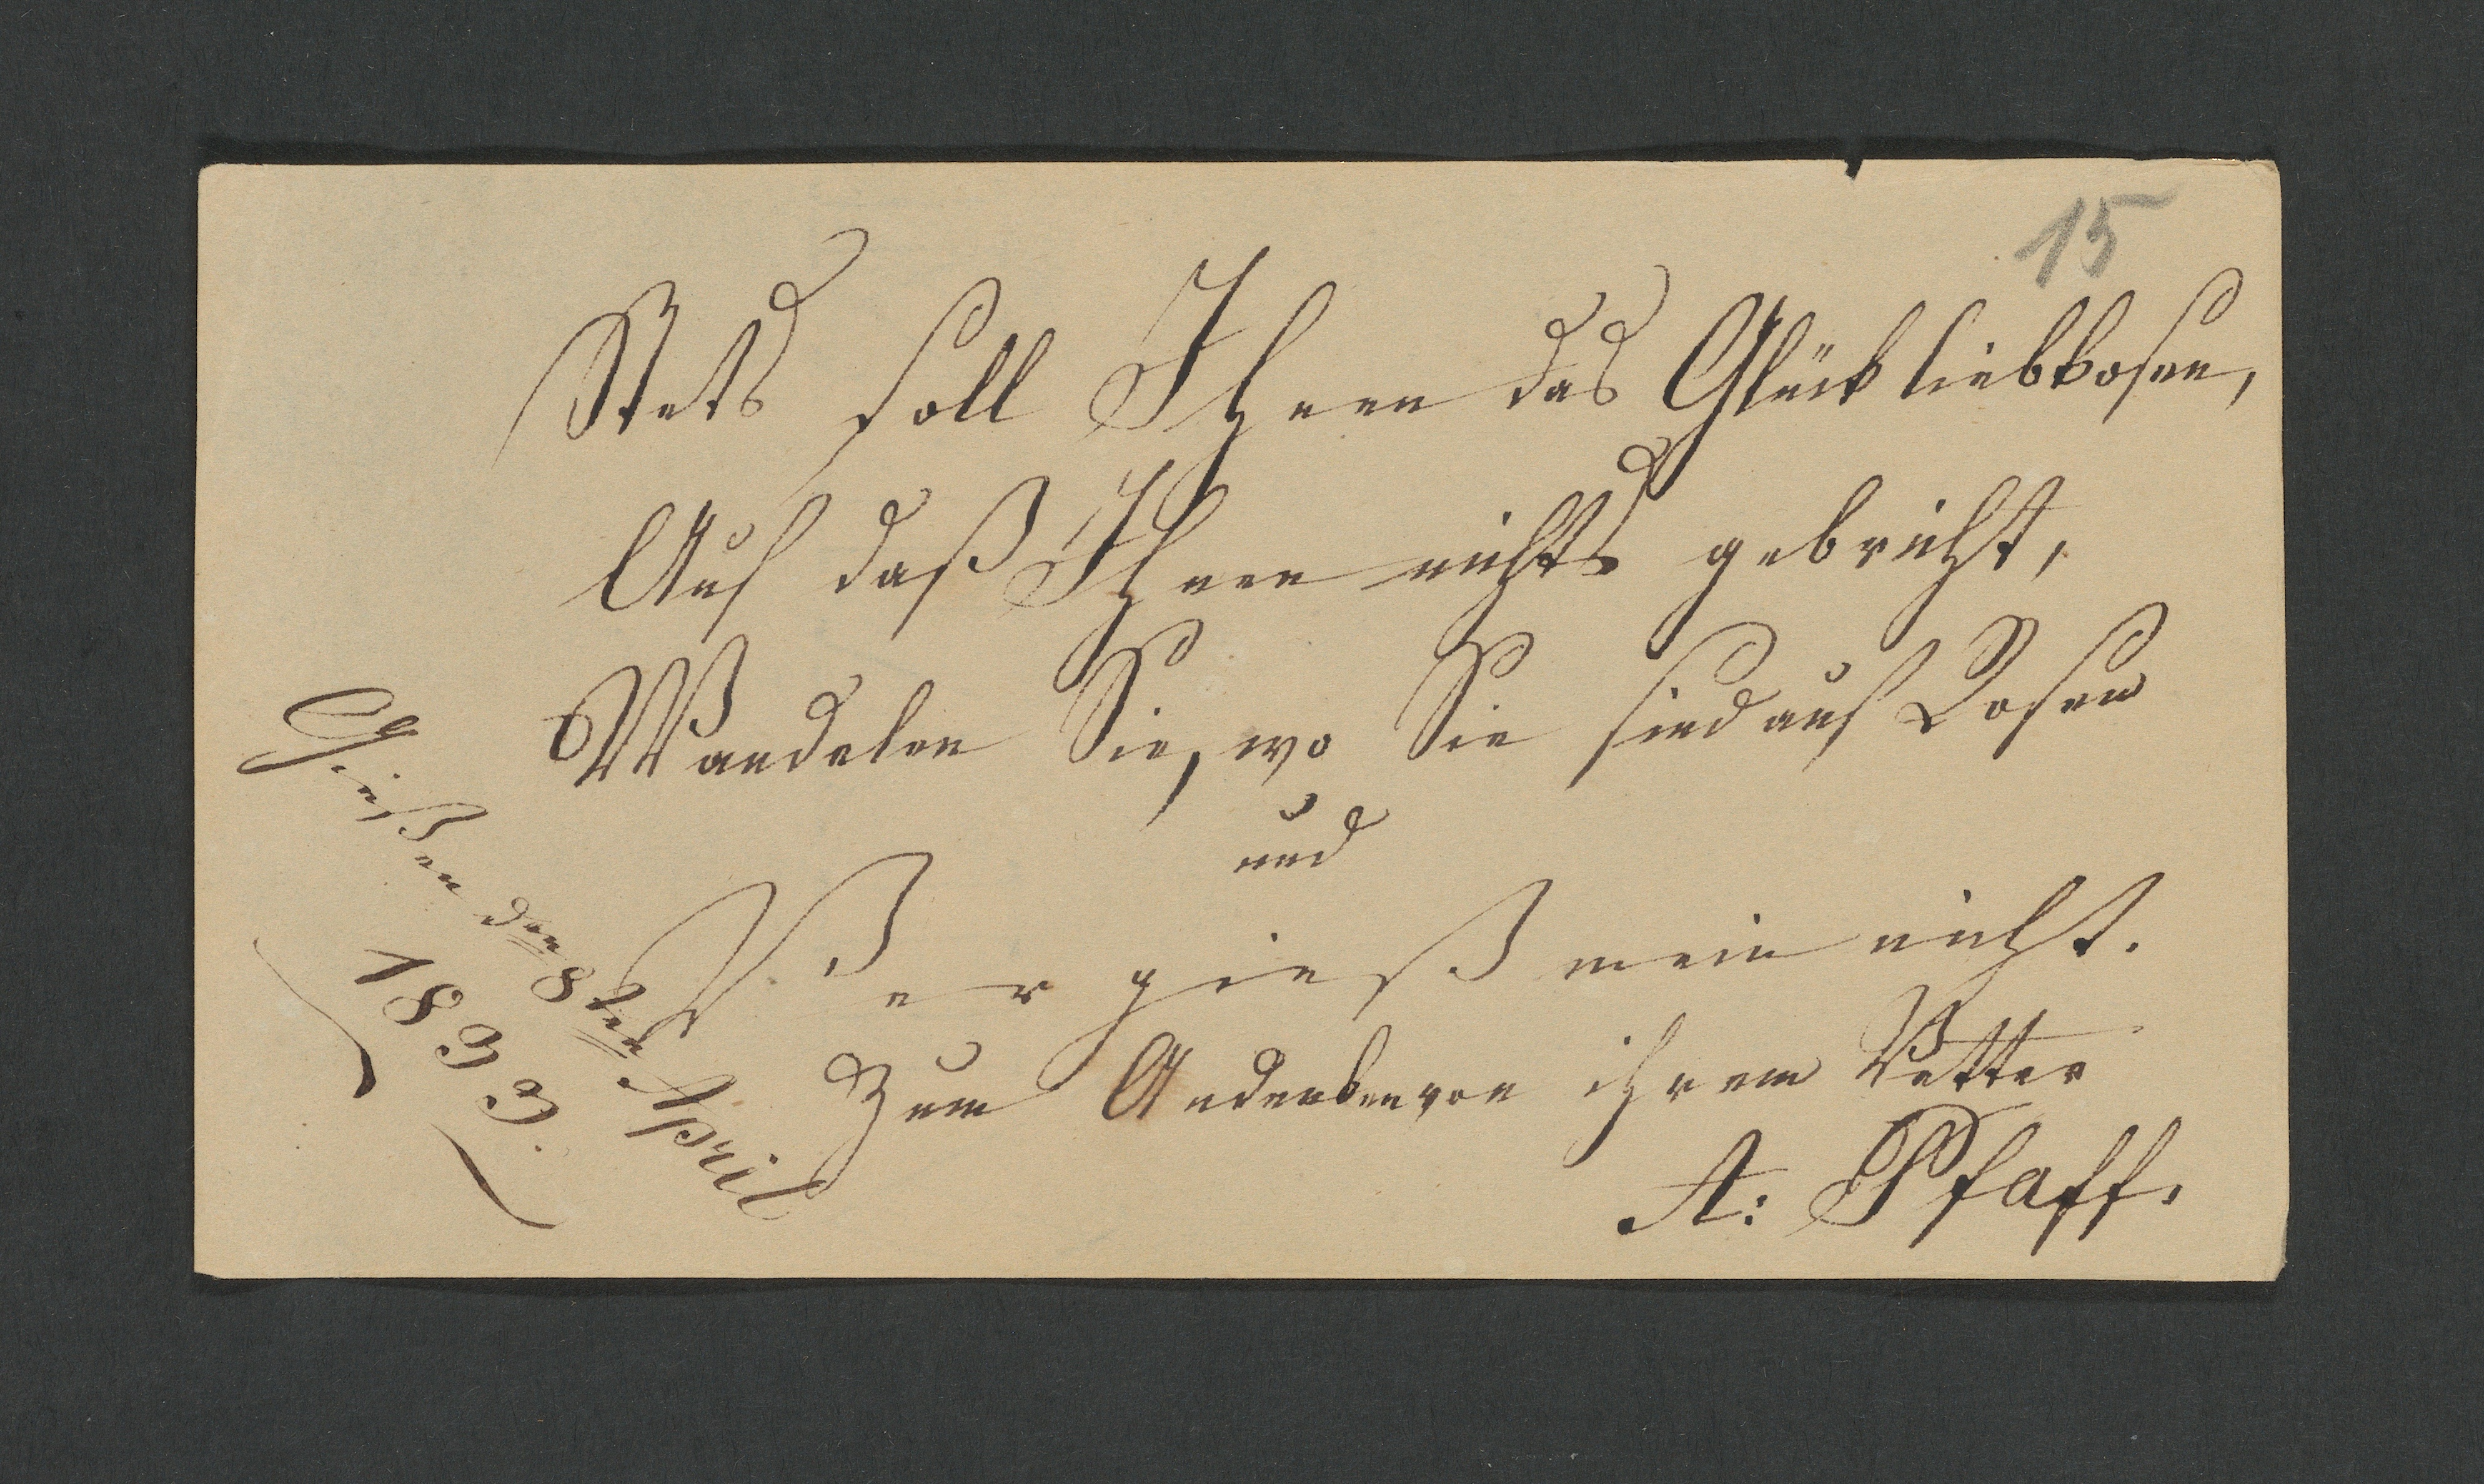 15
Stets soll Ihnen das Glück liebkosen,
Auf daß Ihnen nichts gebricht,
Wandelen Sie, wo Sie sind auf Rosen
und
Vergieß mein nicht.
Zum Andenken von ihrem Vetter
A: Pfaff.
Gießen den 8ten April
1833.